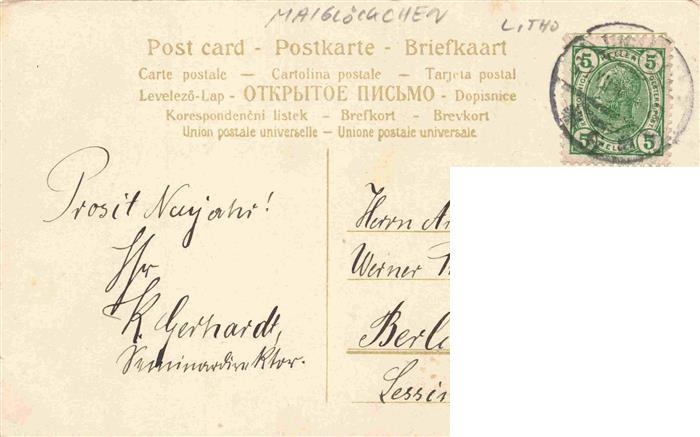 MAIGLÖCKCHEN
LITHO
Post card - Postkarte - Briefkaart
Carte postale — Cartolina postale — Tarjeta postal
Levelező-Lap - ОТКРЫТОЕ ПИСЬМО - Dopisnice
Korespondenční listek – Brefkort – Brevkort
Union postale universelle – Unione postale universale
5 5
5 5
Prosit Neujahr!
Ihr
K. Gerhardt,
Seminardirektor.
Herrn
Werner
Berl
Lessin